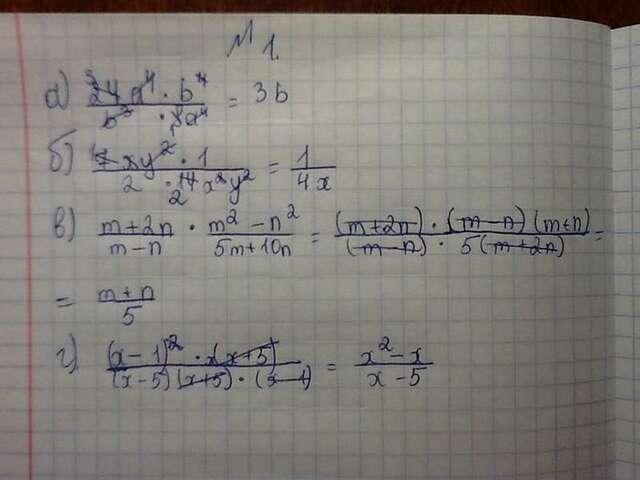 № 1.
а) 3 24 a⁴ · b⁴ / b³ · 8a⁴ = 3b
б) 7xy² · 1 / 2 · 14 2 x²y² = 1 / 4x
в) m+2n / m−n · m²−n² / 5m+10n = (m+2n) · (m−n)(m+n) / (m−n) · 5(m+2n) =
= m+n / 5
г) (x−1)² · x(x+5) / (x−5)(x+5) · (x−1) = x²−x / x−5